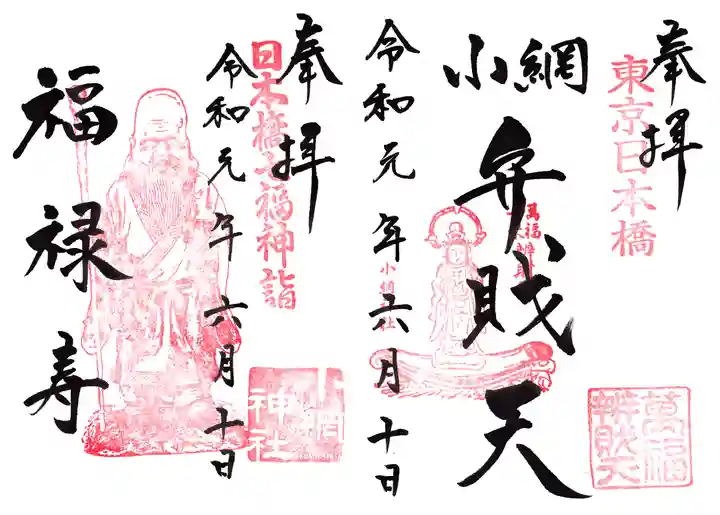 奉拝
東京日本橋
小網
弁財天
萬福
小網神社
萬福
辨財天
令和元年六月十日
奉拝
日本橋七福神詣
令和元年六月十日
福禄寿
小網
神社